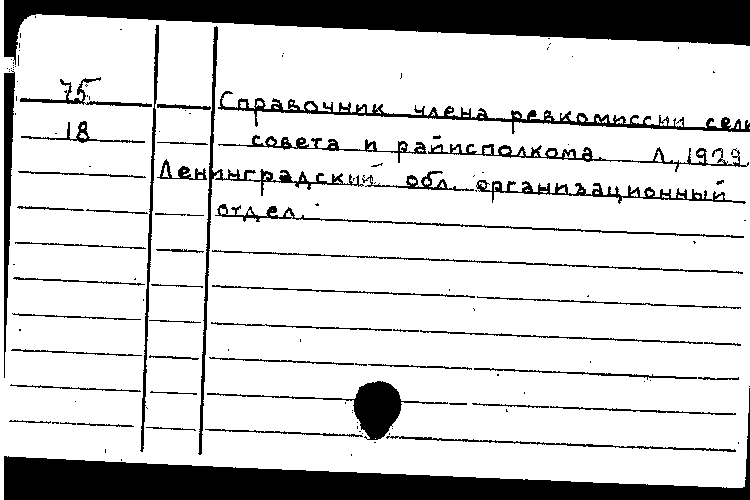 75
18
Справочник члена ревкомиссии сель
совета и райисполкома. Л., 1929.
Ленинградский обл. организационный
отдел.